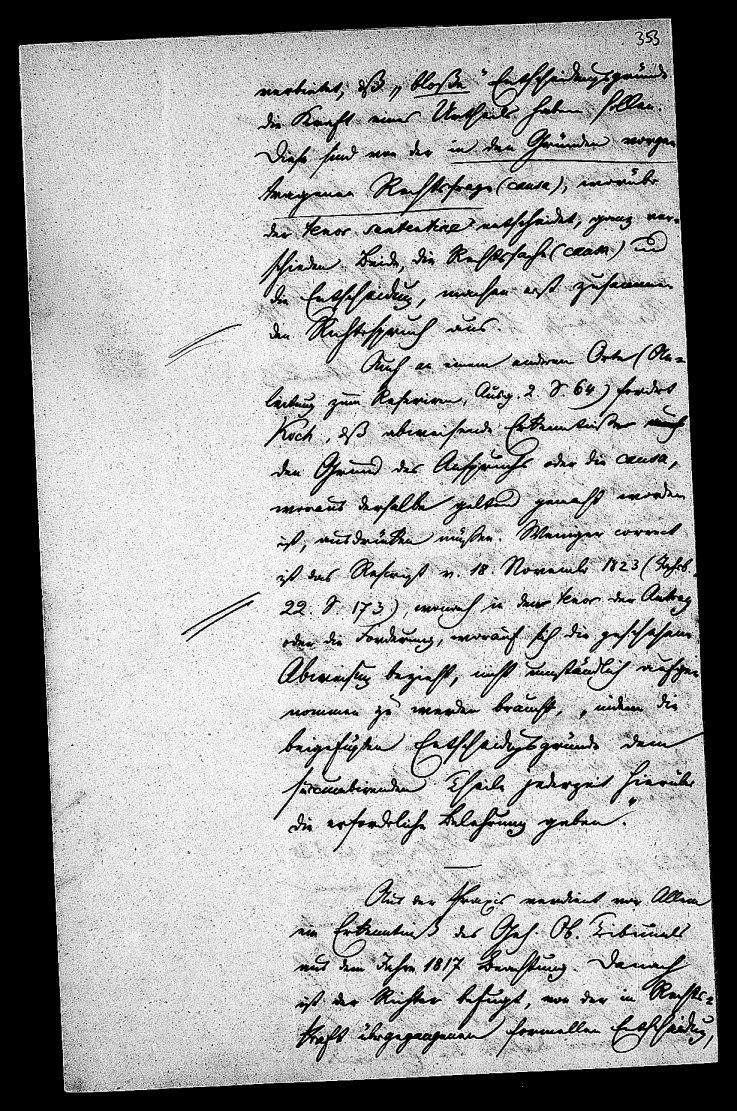 353
verbietet, dß „bloße" Entscheidungsgründe
die Kraft eines Urtheils haben sollen.
Diese sind von der in den Gründen vorge-
tragenen Rechtsfrage (causa), worüber
der tenor sententiae entscheidet, ganz ver-
schieden. Beide, die Rechtssache (causa) und
die Entscheidung, machen erst zusammen
den Rechtsspruch aus.
Auch an einem anderen Orte (An-
leitung zum Referiren, Ausg. 2. S. 64) fordert
Koch, dß abweisende Erkenntnisse auch
den Grund des Anspruchs oder die causa,
woraus derselbe geltend gemacht worden
ist, ausdrücken müssen. Weniger correct
ist das Rescript v. 18. Novembr 1823 (Jahrb.
22. S. 173) wonach in dem tenor der Antrag
oder die Forderung, worauf sich die geschehene
Abweisung bezieht, nicht umständlich aufge-
nommen zu werden braucht, „indem die
beigefügten Entscheidungsgründe dem
succumbirenden Theile jederzeit hierüber
die erforderliche Belehrung geben."
Aus der Praxis verdient vor Allem
ein Erkenntniß des Geh. Ob. Tribunals
aus dem Jahre 1817 Beachtung. Danach
ist der Richter befugt, von der in Rechts-
kraft übergegangenen formellen Entscheidung,